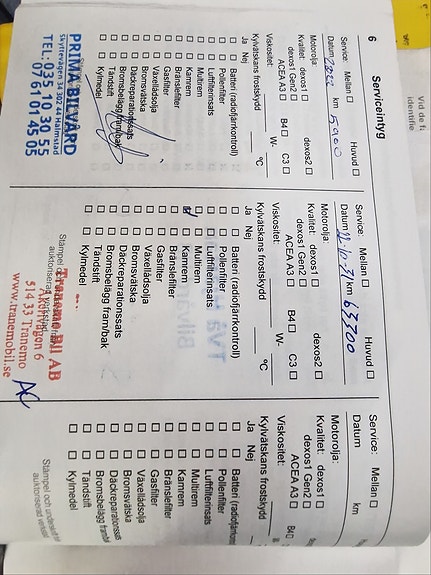 6 Serviceintyg
Service: Mellan ☐ Huvud ☐
Datum km
Motorolja:
Kvalitet: dexos1 ☐ dexos2 ☐
dexos1 Gen2 ☐
ACEA A3 ☐ B4 ☐ C3 ☐
Viskositet: W-
Kylvätskans frostskydd °C
Ja Nej
☐ ☐ Batteri (radiofjärrkontroll)
☐ ☐ Pollenfilter
☐ ☐ Luftfilterinsats
☐ ☐ Multirem
☐ ☐ Kamrem
☐ ☐ Bränslefilter
☐ ☐ Gasfilter
☐ ☐ Växellådsolja
☐ ☐ Bromsvätska
☐ ☐ Däckreparationssats
☐ ☐ Bromsbelägg fram/bak
☐ ☐ Tändstift
☐ ☐ Kylmedel
PRIMA BILVÅRD
Skyttevägen 34 302 44 Halmstad
TEL: 035 10 34 55
0761 01 45 05
Service: Mellan ☐ Huvud ☐
Datum km 63700
Motorolja:
Kvalitet: dexos1 ☐ dexos2 ☐
dexos1 Gen2 ☐
ACEA A3 ☐ B4 ☐ C3 ☐
Viskositet: W-
Kylvätskans frostskydd °C
Ja Nej
☐ ☐ Batteri (radiofjärrkontroll)
☐ ☐ Pollenfilter
☐ ☐ Luftfilterinsats
☐ ☐ Multirem
☐ Kamrem
☐ ☐ Bränslefilter
☐ ☐ Gasfilter
☐ ☐ Växellådsolja
☐ ☐ Bromsvätska
☐ ☐ Däckreparationssats
☐ ☐ Bromsbelägg fram/bak
☐ ☐ Tändstift
☐ ☐ Kylmedel
Tranemo Bil AB
514 33 Tranemo
www.tranemobil.se
AC
Service: Mellan ☐
Datum km
Motorolja:
Kvalitet: dexos1 ☐
dexos1 Gen2 ☐
ACEA A3 ☐ B4 ☐
Viskositet:
Kylvätskans frostskydd
Ja Nej
☐ ☐ Batteri (radiofjärrkon
☐ ☐ Pollenfilter
☐ ☐ Luftfilterinsats
☐ ☐ Multirem
☐ ☐ Kamrem
☐ ☐ Bränslefilter
☐ ☐ Gasfilter
☐ ☐ Växellådsolja
☐ ☐ Bromsvätska
☐ ☐ Däckreparationssats
☐ ☐ Bromsbelägg fram/bak
☐ ☐ Tändstift
☐ ☐ Kylmedel
Stämpel och underskr
auktoriserad verkstad